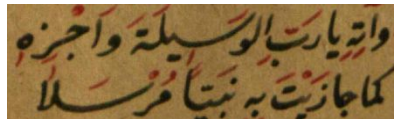 وَآتِهِ يَارَبِّ الوَسِيلَةَ وَاجْزِهِ
كما جازَيْتَ به نَبِيًّا مُرْسَلًا